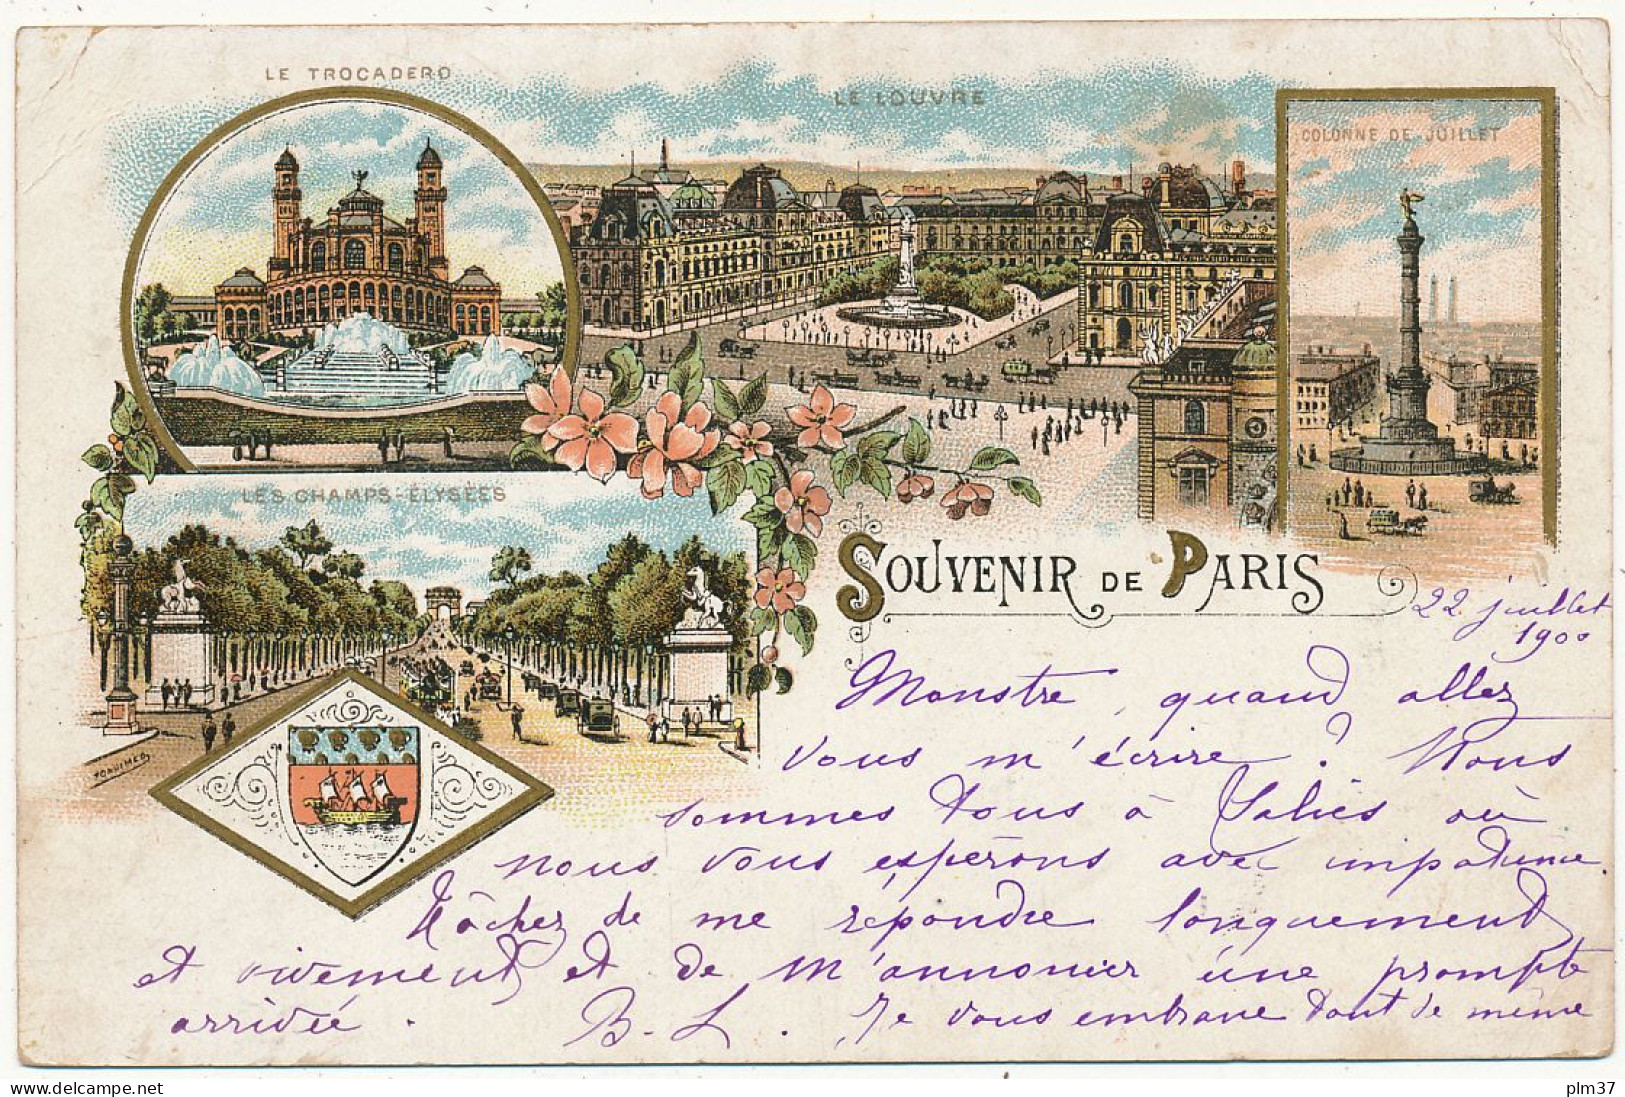 LE TROCADERO
LE LOUVRE
COLONNE DE JUILLET
LES CHAMPS-ÉLYSÉES
SOUVENIR DE PARIS
22 juillet
1900
Monstre, quand allez
vous m'écrire? Nous
sommes tous à Salies où
nous vous espérons avec impatience.
Tâchez de me répondre longuement
et vivement et de m'annoncer une prompte
arrivée. B-L. Je vous embrasse tout de même
delcampe.net
plm37